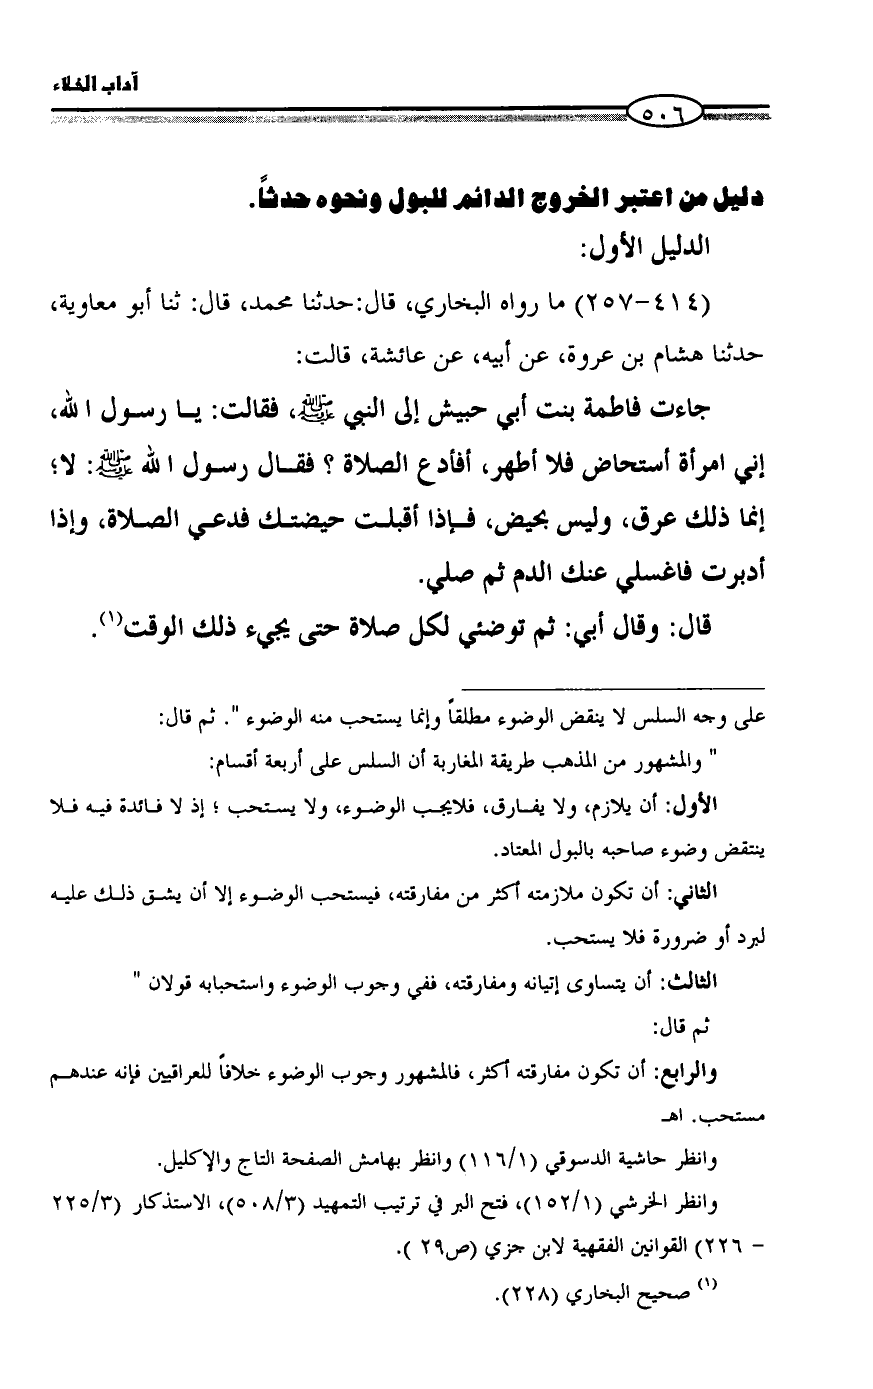 آداب الخلاء
٥٠٦
دليل من اعتبر الخروج الدائم للبول ونحوه حدثاً.
الدليل الأول:
(٤١٤-٢٥٧) ما رواه البخاري، قال:حدثنا محمد، قال: ثنا أبو معاوية،
حدثنا هشام بن عروة، عن أبيه، عن عائشة، قالت:
جاءت فاطمة بنت أبي حبيش إلى النبي ﷺ، فقالت: يا رسول الله،
إني امرأة أستحاض فلا أطهر، أفأدع الصلاة ؟ فقال رسول الله ﷺ: لا؛
إنما ذلك عرق، وليس بحيض، فإذا أقبلت حيضتك فدعي الصلاة، وإذا
أدبرت فاغسلي عنك الدم ثم صلي.
قال: وقال أبي: ثم توضئي لكل صلاة حتى يجيء ذلك الوقت(١).
على وجه السلس لا ينقض الوضوء مطلقاً وإنما يستحب منه الوضوء ". ثم قال:
" والمشهور من المذهب طريقة المغاربة أن السلس على أربعة أقسام:
الأول: أن يلازم، ولا يفارق، فلايجب الوضوء، ولا يستحب ؛ إذ لا فائدة فيه فلا
ينتقض وضوء صاحبه بالبول المعتاد.
الثاني: أن تكون ملازمته أكثر من مفارقته، فيستحب الوضوء إلا أن يشق ذلك عليه
لبرد أو ضرورة فلا يستحب.
الثالث: أن يتساوى إتيانه ومفارقته، ففي وجوب الوضوء واستحبابه قولان "
ثم قال:
والرابع: أن تكون مفارقته أكثر، فالمشهور وجوب الوضوء خلافاً للعراقيين فإنه عندهم
مستحب. اهـ
وانظر حاشية الدسوقي (١١٦/١) وانظر بهامش الصفحة التاج والإكليل.
وانظر الخرشي (١٥٢/١)، فتح البر في ترتيب التمهيد (٥٠٨/٣)، الاستذكار (٢٢٥/٣
– ٢٢٦) القوانين الفقهية لابن جزي (ص٢٩ ).
(١) صحيح البخاري (٢٢٨).